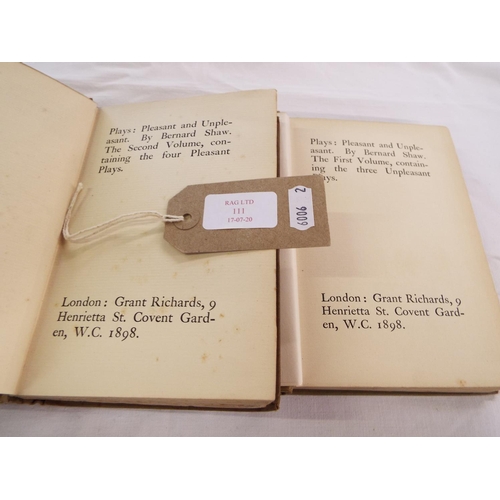 Plays: Pleasant and Unple-
asant. By Bernard Shaw.
The Second Volume, con-
taining the four Pleasant
Plays.
London: Grant Richards, 9
Henrietta St. Covent Gard-
en, W.C. 1898.
RAG LTD
111
17-07-20
6006 2
Plays: Pleasant and Unple-
asant. By Bernard Shaw.
The First Volume, contain-
ing the three Unpleasant
Plays.
London: Grant Richards, 9
Henrietta St. Covent Gard-
en, W.C. 1898.